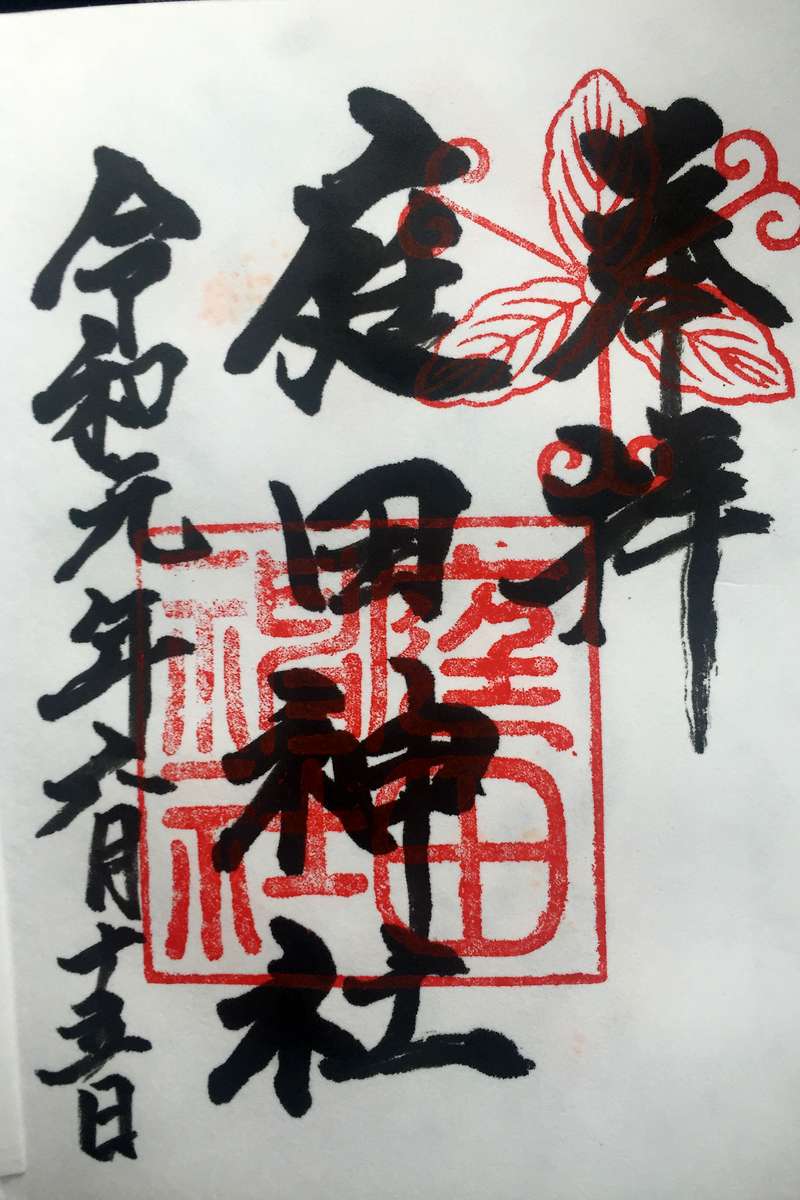 奉拝
庭田神社
令和元年六月十五日
庭田
神社